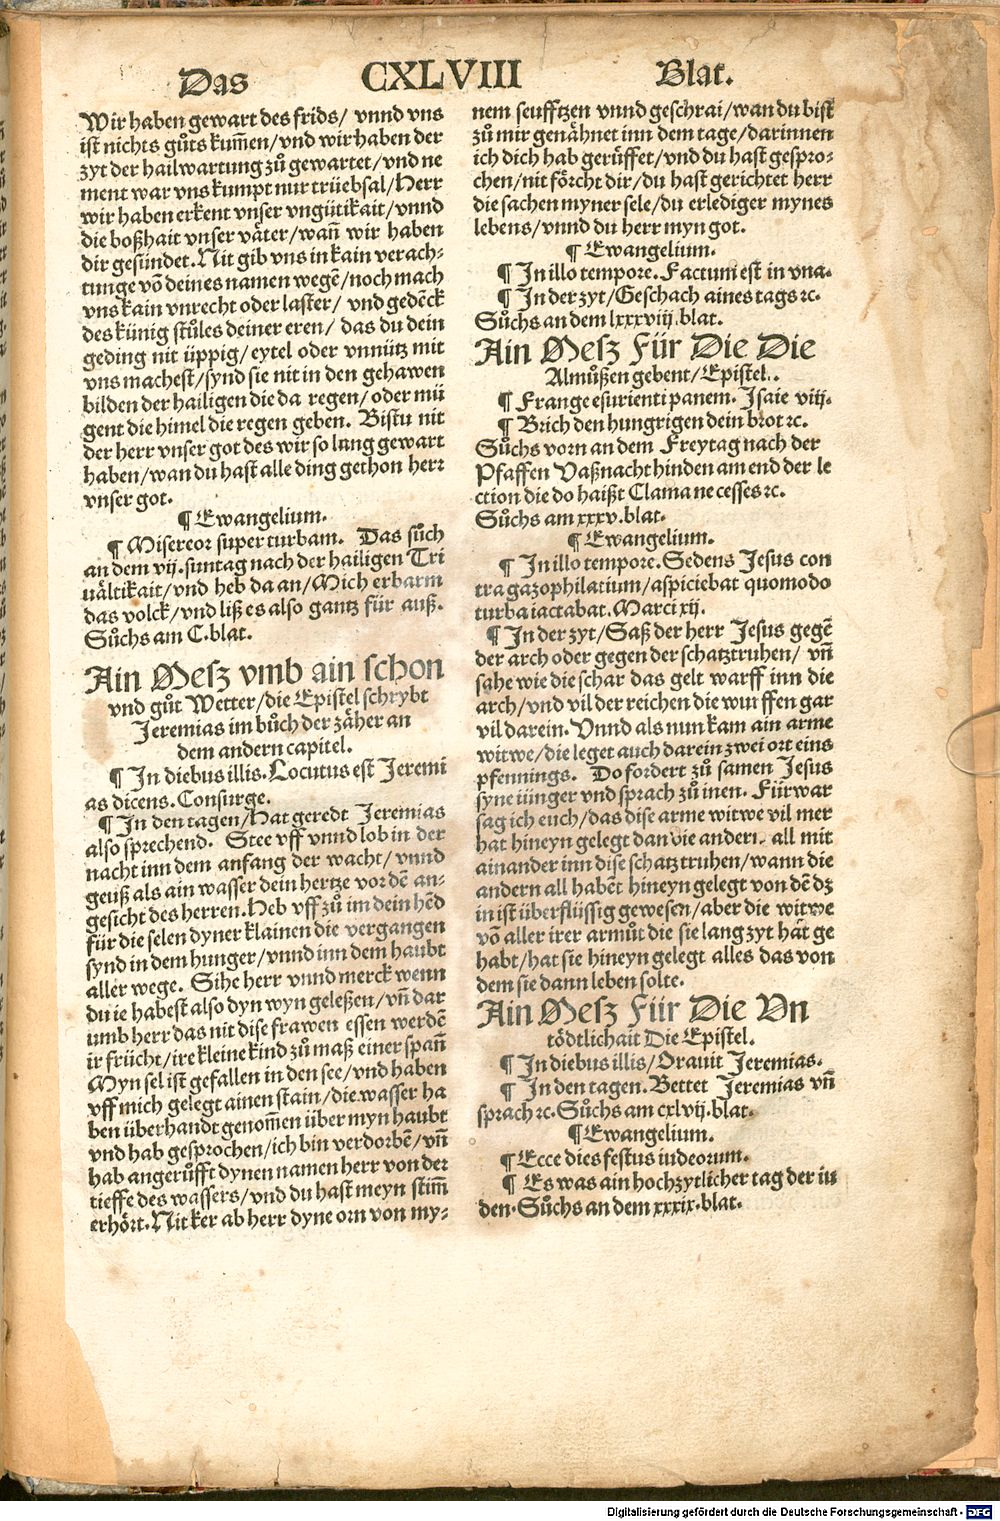 Das CXLVIII Blat.
Wir haben gewart des frids/ vnnd vns
ist nichts gůts kum̄en/vnd wir haben der
zyt der hailwartung zů gewartet/vnd ne
ment war vns kumpt nur trüebsal/Herr
wir haben erkent vnser vngütikait/vnnd
die boßhait vnser väter/wan̄ wir haben
dir gesündet. Nit gib vns in kain verach⸗
tunge vō deines namen wegē/noch mach
vns kain vnrecht oder laster/ vnd gedēck
des künig stůles deiner eren/ das du dein
geding nit üppig/eytel oder vnnütz mit
vns machest/synd sie nit in den gehawen
bilden der hailigen die da regen/oder mü
gent die himel die regen geben. Bistu nit
der herr vnser got des wir so lang gewart
haben/wan du hast alle ding gethon herr
vnser got.
¶ Ewangelium.
¶ Misereor super turbam. Das sůch
an dem vij. suntag nach der hailigen Tri
uältikait/vnd heb da an/Mich erbarm
das volck/vnd liß es also gantz für auß.
Sůchs am C.blat.
Ain Mesz vmb ain schon
vnd gůt Wetter/die Epistel schrybt
Jeremias im bůch der zäher an
dem andern capitel.
¶ In diebus illis. Locutus est Jeremi
as dicens. Consurge.
¶ In den tagen/Hat geredt Jeremias
also sprechend. Stee vff vnnd lob in der
nacht inn dem anfang der wacht/ vnnd
geuß als ain wasser dein hertze vor dē an⸗
gesicht des herren. Heb vff zů im dein hēd
für die selen dyner klainen die vergangen
synd in dem hunger/vnnd inn dem haubt
aller wege. Sihe herr vnnd merck wenn
du ie habest also dyn wyn geleßen/vn̄ dar
umb herr das nit dise frawen essen werdē
ir frücht/ire kleine kind zů maß einer span̄
Myn sel ist gefallen in den see/vnd haben
vff mich gelegt ainen stain/die wasser ha
ben überhandt genom̄en über myn haubt
vnd hab gesprochen/ich bin verdorbē/vn̄
hab angerůfft dynen namen herr von der
tieffe des wassers/vnd du hast meyn stim̄
erhört. Nit ker ab herr dyne orn von my⸗
nem seufftzen vnnd geschrai/wan du bist
zů mir genähnet inn dem tage/darinnen
ich dich hab gerüffet/vnd du hast gespro⸗
chen/nit förcht dir/du hast gerichtet herr
die sachen myner sele/du erlediger mynes
lebens/vnnd du herr myn got.
¶ Ewangelium.
¶ In illo tempore. Factum est in vna.
¶ In der zyt/Geschach aines tags ꝛc.
Sůchs an dem lxxxviij.blat.
Ain Mesz Für Die Die
Almůßen gebent/Epistel.
¶ Frange esurienti panem. Isaie viij.
¶ Brich den hungrigen dein brot ꝛc.
Sůchs vorn an dem Freytag nach der
Pfaffen Vaßnacht hinden am end der le
ction die do haißt Clama ne cesses ꝛc.
Sůchs am xxxv.blat.
¶ Ewangelium.
¶ In illo tempore. Sedens Jesus con
tra gazophilatium/aspiciebat quomodo
turba iactabat. Marci xij.
¶ In der zyt/Saß der herr Jesus gegē
der arch oder gegen der schatztruhen/ vn̄
sahe wie die schar das gelt warff inn die
arch/vnd vil der reichen die wurffen gar
vil darein. Vnnd als nun kam ain arme
witwe/die leget auch darein zwei ort eins
pfennings. Do fordert zů samen Jesus
syne iünger vnd sprach zů inen. Fürwar
sag ich euch/das dise arme witwe vil mer
hat hineyn gelegt dan die andern all mit
ainander inn dise schatztruhen/wann die
andern all habēt hineyn gelegt von dē dz
in ist überflüssig gewesen/aber die witwe
vō aller irer armůt die sie lang zyt hät ge
habt/hat sie hineyn gelegt alles das von
dem sie dann leben solte.
Ain Mesz Für Die Vn
tödtlichait Die Epistel.
¶ In diebus illis/Orauit Jeremias.
¶ In den tagen. Bettet Jeremias vn̄
sprach ꝛc. Sůchs am cxlvij.blat.
¶ Ewangelium.
¶ Ecce dies festus iudeorum.
¶ Es was ain hochzytlicher tag der iu
den. Sůchs an dem xxxix.blat.
Digitalisierung gefördert durch die Deutsche Forschungsgemeinschaft - DFG